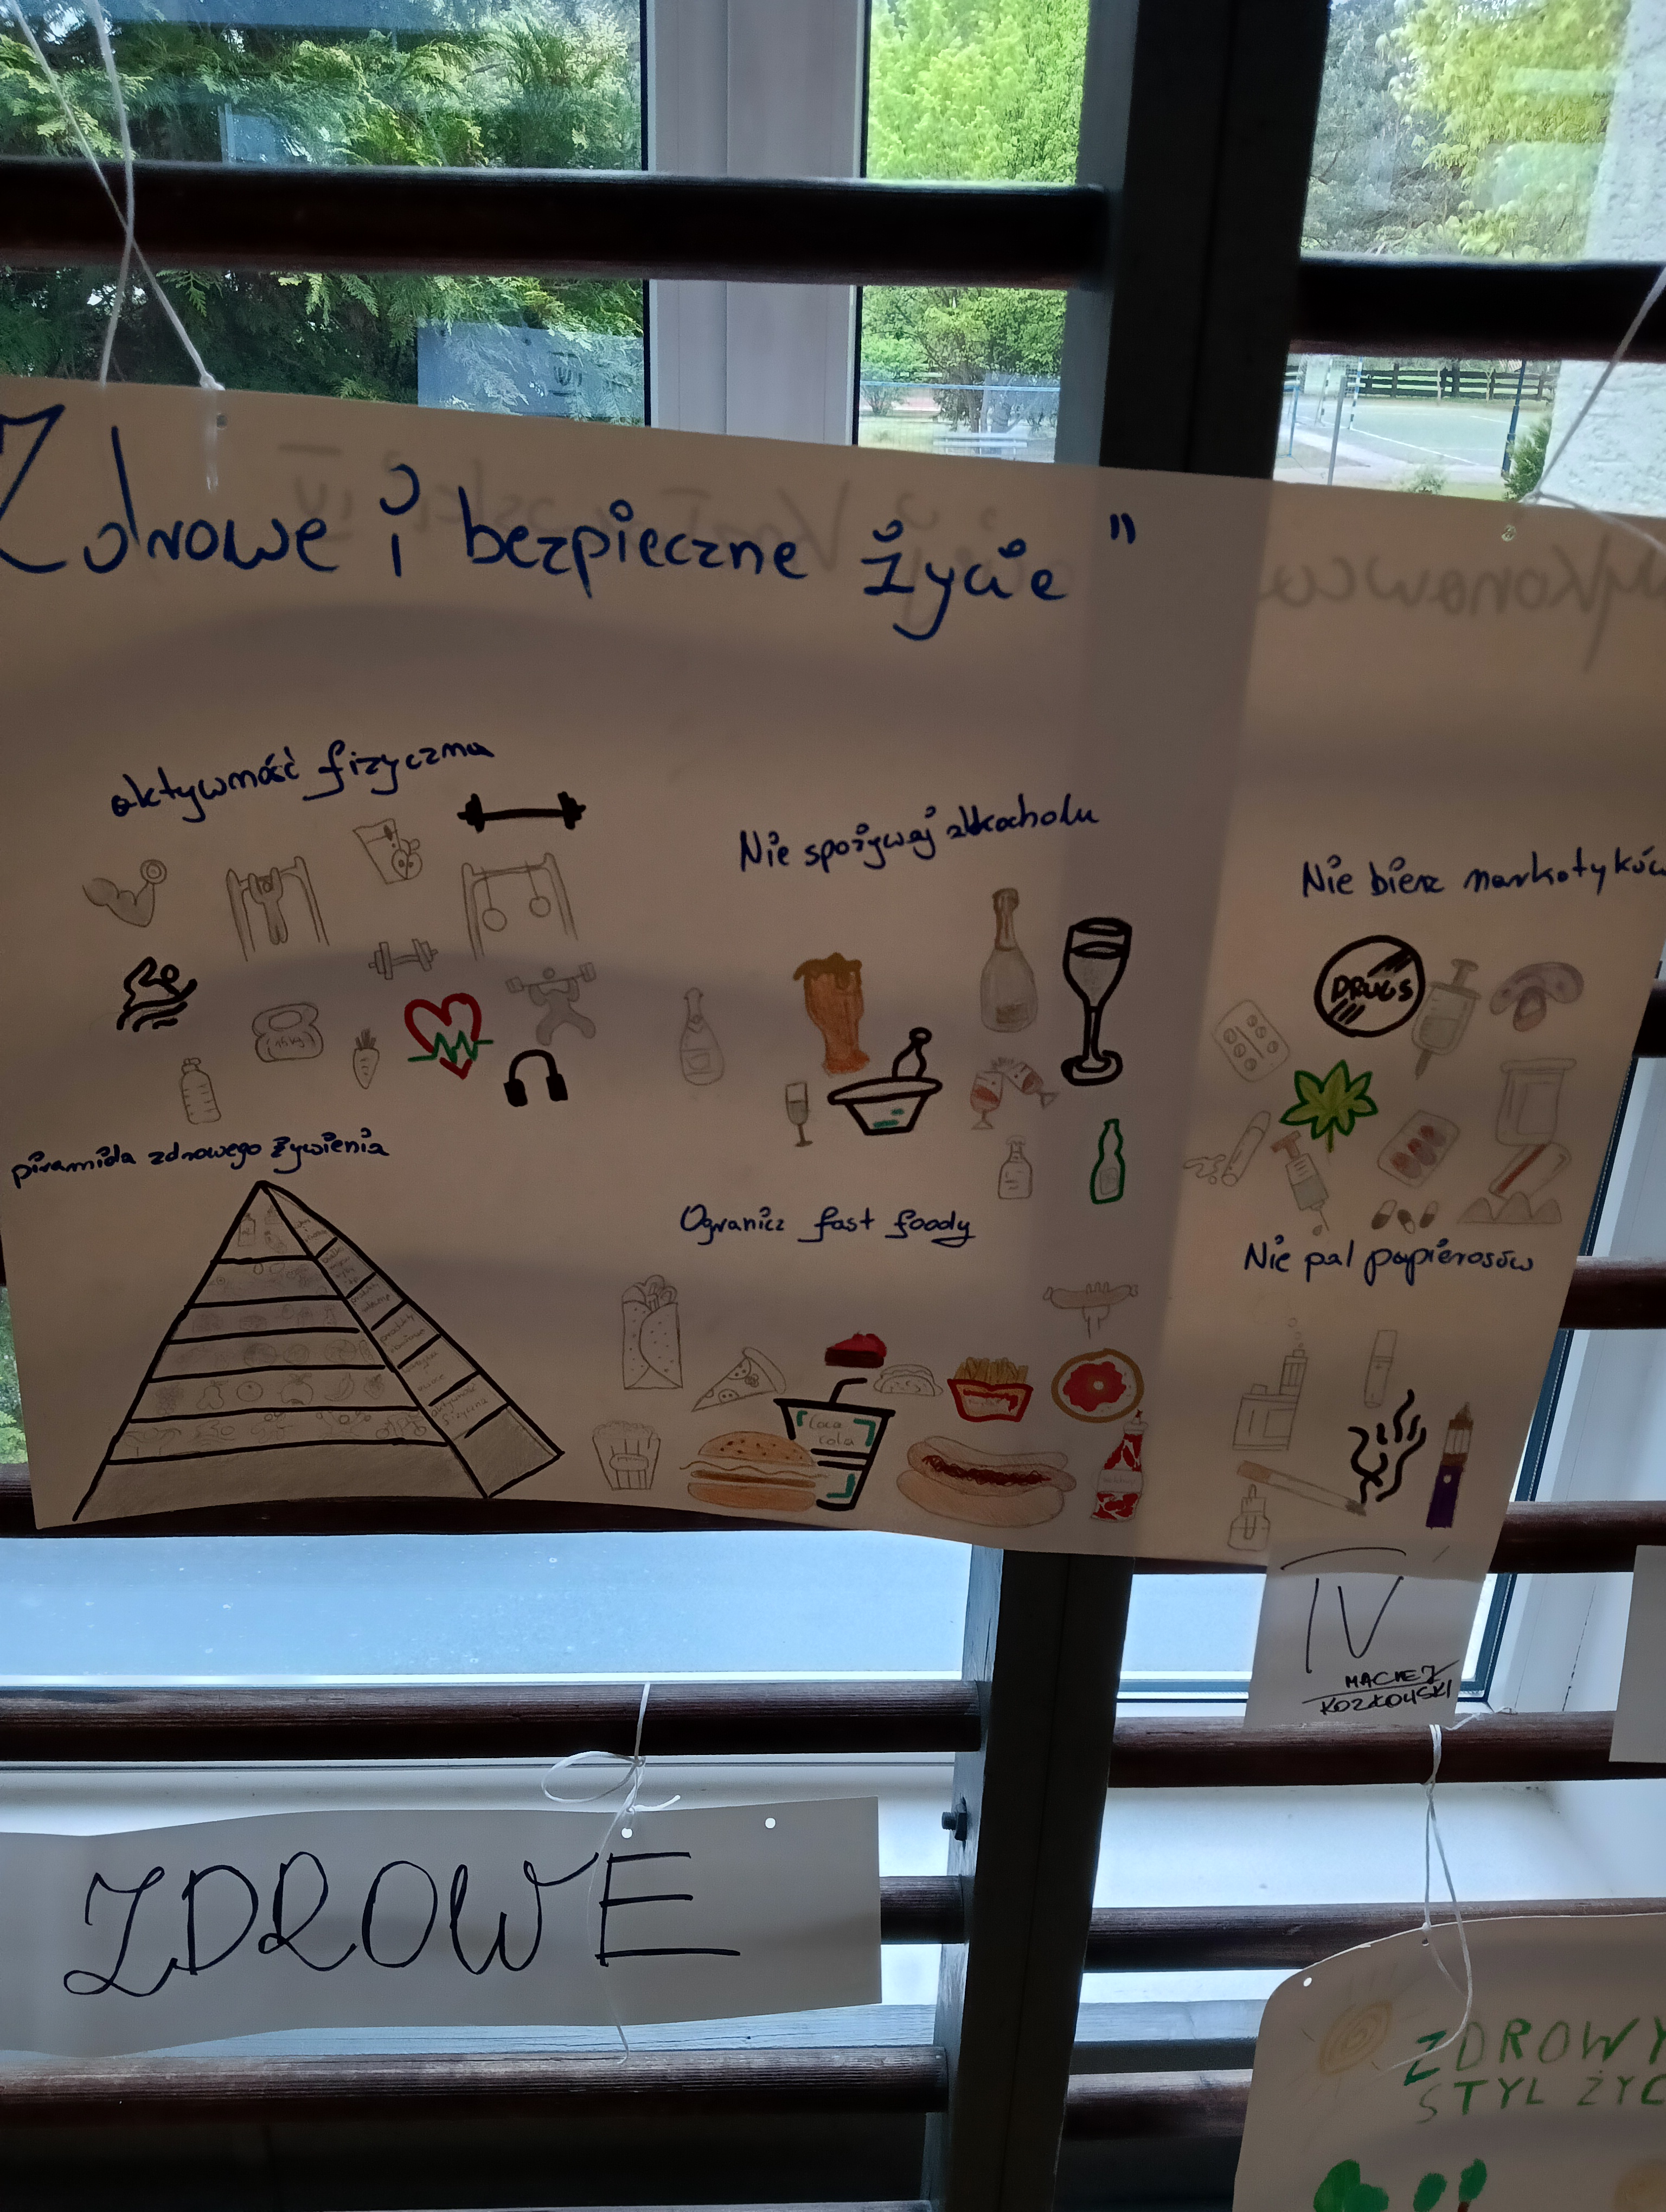 Zdrowe i bezpieczne życie "
aktywność fizyczna
Nie spożywaj alkocholu
Nie bierz narkotyków
DRUGS
piramida zdrowego żywienia
aktywność
fizyczna
Ogranicz fast foody
Coca
cola
Nie pal papierosów
IV
MACIEJ
KOZŁOWSKI
ZDROWE
ZDROWY
STYL ŻYC